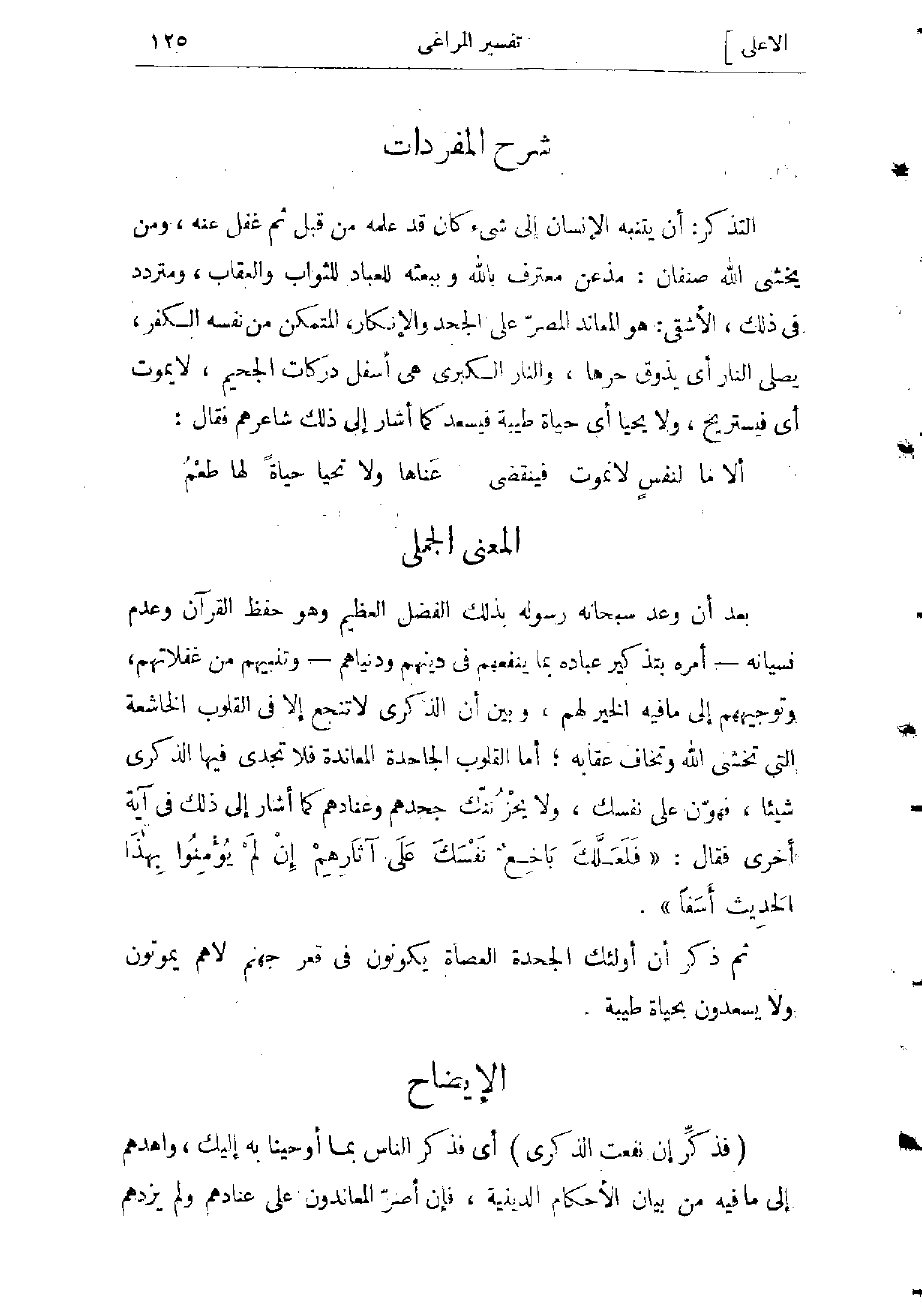 الأعلى ]
تفسير المراغى
١٢٥
شرح المفردات
التذكر: أن يتنبه الإنسان إلى شىء كان قد علمه من قبل ثم غفل عنه ، ومن
يخشى الله صنفان : مذعن معترف بالله وببعثه للعباد للثواب والعقاب ، ومتردد
فى ذلك ، الأشقى: هو المعاند المصرّ على الجحد والإنكار، المتمكن من نفسه الكفر ،
يصلى النار أى يذوق حرها ، والنار الكبرى هى أسفل دركات الجحيم ، لايموت
أى فيستريح ، ولا يحيا أى حياة طيبة فيسعد كما أشار إلى ذلك شاعرهم فقال :
ألا ما لنفسٍ لاتموت فينقضى عَناها ولا تحيا حياةً لها طعْمُ
المعنى الجملى
بعد أن وعد سبحانه رسوله بذلك الفضل العظيم وهو حفظ القرآن وعدم
نسيانه — أمره بتذكير عباده بما ينفعهم فى دينهم ودنياهم — وتنبيههم من غفلاتهم،
وتوجيههم إلى مافيه الخير لهم ، وبين أن الذكرى لاتنجع إلا فى القلوب الخاشعة
التي تخشى الله وتخاف عقابه ؛ أما القلوب الجاحدة المعاندة فلا تجدى فيها الذكرى
شيئا ، فهوّن على نفسك ، ولا يحزُننّك جحدهم وعنادهم كما أشار إلى ذلك فى آية
أخرى فقال : « فَلَعَلَّكَ بَاخِعٌ نَفْسَكَ عَلَى آثَارِهِمْ إِنْ لَمْ يُؤْمِنُوا بِهٰذَا
الحَدِيثِ أَسَفاً » .
ثم ذكر أن أولئك الجحدة العصاة يكونون فى قعر جهنم لاهم يموتون
ولا يسعدون بحياة طيبة .
الإيضاح
( فذكِّر إن نفعت الذكرى ) أى فذكر الناس بما أوحينا به إليك ، واهدهم
إلى مافيه من بيان الأحكام الدينية ، فإن أصرّ المعاندون على عنادهم ولم يزدهم